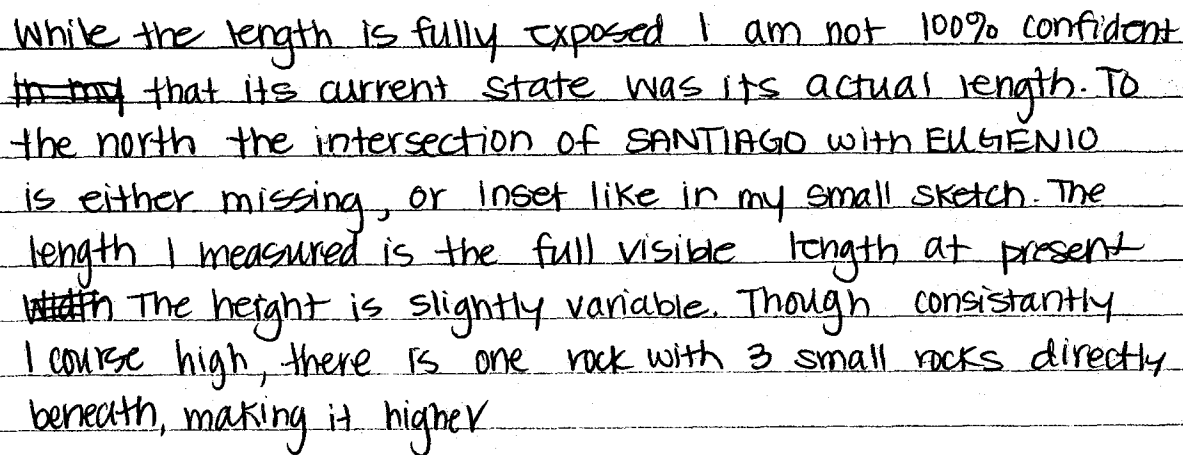 While the length is fully exposed I am not 100% confident
in my that its current state was its actual length. To
the north the intersection of SANTIAGO with EUGENIO
is either missing, or inset like in my small sketch. The
length I measured is the full visible length at present
width The height is slightly variable. Though consistantly
1 course high, there is one rock with 3 small rocks directly
beneath, making it higher